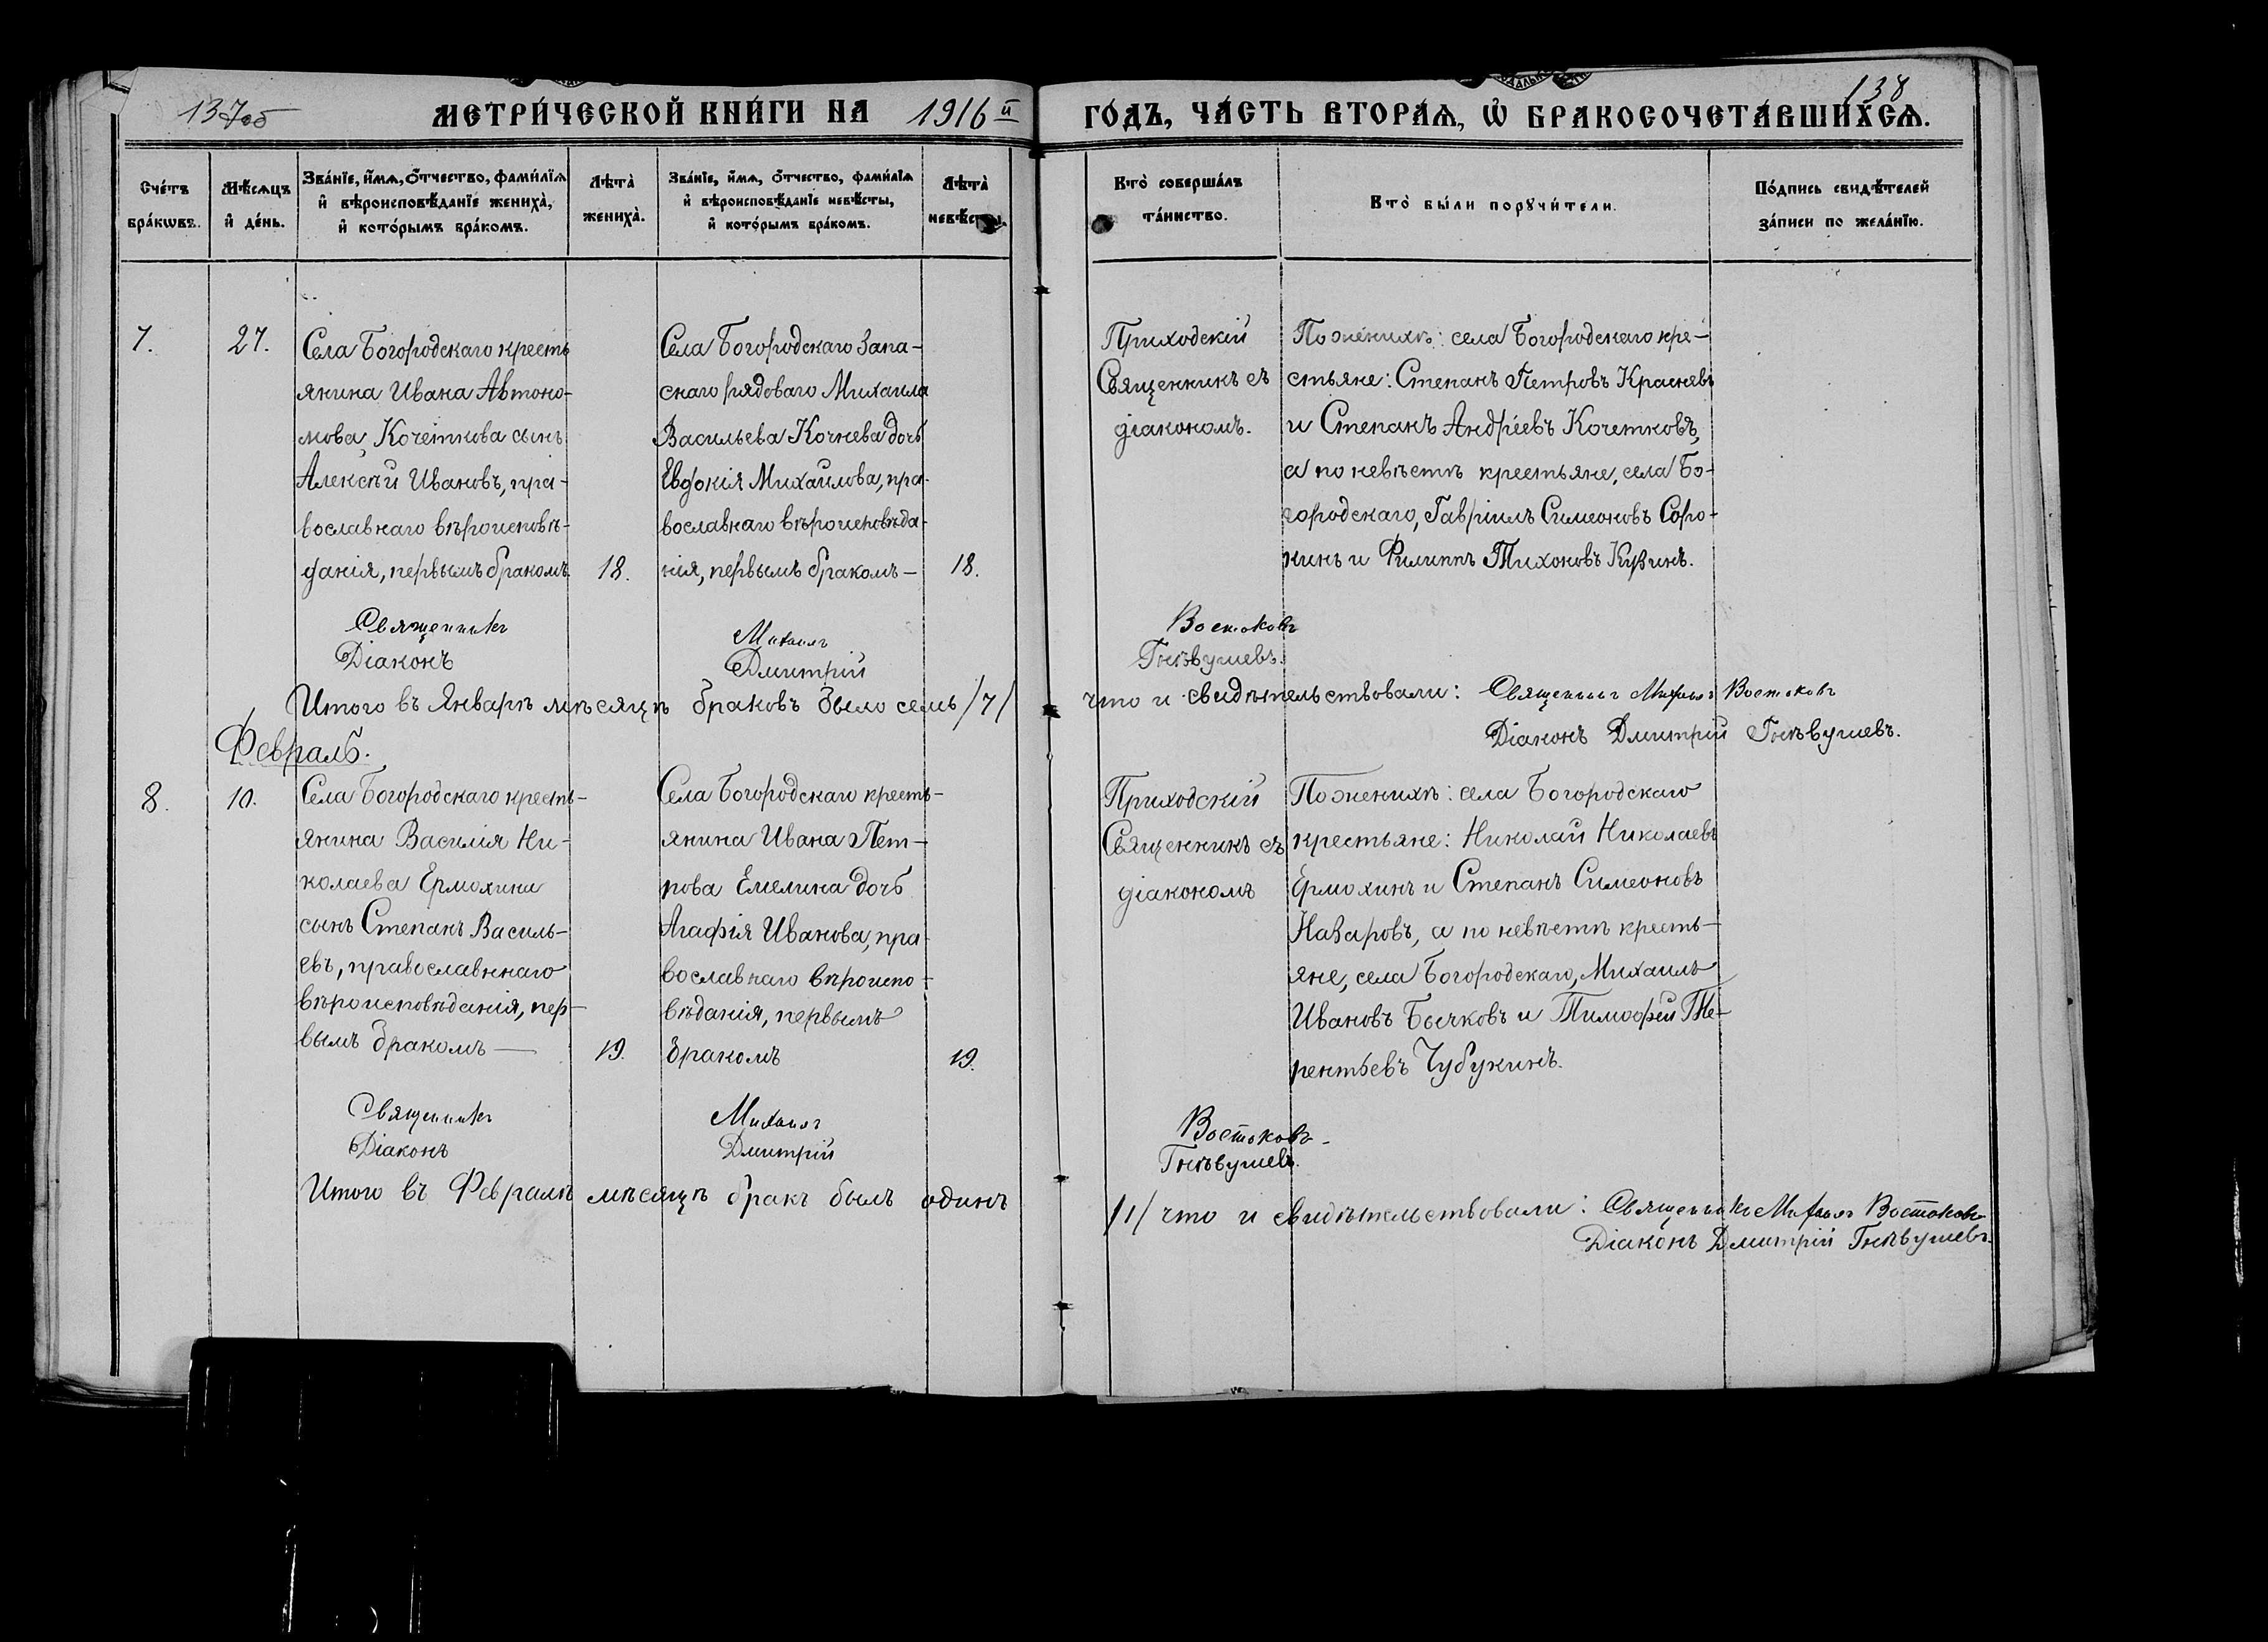 137об
МЕТРИ́ЧЕСКОЙ КНИ́ГИ НА 1916 й ГО́ДЪ, ЧА́СТЬ ВТОРА́Ѧ, Ѡ БРАКОСОЧЕТА́ВШИХСѦ.
138
Сче́тъ бра́кѡвъ.
Мѣ́сѧцъ и҆ де́нь.
Зва́нїе, и҆́мѧ, ѻ҆́тчество, фами́лїѧ
и҆ вѣроисповѣ́данїе жениха̀,
и҆ кото́рымъ бра́комъ.
Лѣта̀ жениха̀.
Зва́нїе, и҆́мѧ, ѻ҆́тчество, фами́лїѧ
и҆ вѣроисповѣ́данїе невѣ́сты,
и҆ кото́рымъ бра́комъ.
Лѣта̀ невѣ́сты.
Кто̀ соверша́лъ
та́инство.
Кто̀ бы́ли порꙋчи́тели.
По́дпись свидѣ́телей
за́писи по жела́нїю.
7.
27.
Села Богородскаго кресть
янина Ивана Автоно-
мова Кочеткова сынъ
Алексѣй Ивановъ, пра-
вославнаго вѣроисповѣ-
данія, первымъ бракомъ.
18.
Села Богородскаго запа-
снаго рядоваго Михаила
Васильева Кочнева дочь
Евдокія Михаилова, пра-
вославнаго вѣроисповѣда-
нія, первымъ бракомъ—
18.
Приходскій
Священникъ съ
діакономъ.
По женихѣ: села Богородскаго кре-
стьяне: Степанъ Петровъ Красневъ
и Степанъ Андреевъ Кочетковъ,
а по невѣстѣ крестьяне, села Бо-
городскаго, Гавріилъ Симеоновъ Соро-
кинъ и Филиппъ Тихоновъ Кузинъ.
Священникъ Михаилъ Востоковъ
Діаконъ Дмитрій Гнѣвушевъ.
Итого въ Январѣ мѣсяцѣ браковъ было семь /7/ что и свидѣтельствовали: Священникъ Михаилъ Востоковъ
Діаконъ Дмитрій Гнѣвушевъ.
Февраль.
8.
10.
Села Богородскаго кресть-
янина Василія Ни-
колаева Ермохина
сынъ Степанъ Василь-
евъ, православннаго
вѣроисповѣданія, пер-
вымъ бракомъ—
19.
Села Богородскаго кресть-
янина Ивана Пет-
рова Емелина дочь
Агафія Иванова, пра-
вославнаго вѣроиспо-
вѣданія, первымъ
бракомъ
19.
Приходскій
Священникъ съ
діакономъ
По женихѣ: села Богородскаго
крестьяне: Николай Николаевъ
Ермохинъ и Степанъ Симеоновъ
Назаровъ, а по невѣстѣ кресть-
яне, села Богородскаго, Михаилъ
Ивановъ Бычковъ и Тимофей Те-
рентьевъ Чубукинъ.
Священникъ Михаилъ Востоковъ
Діаконъ Дмитрій Гнѣвушевъ.
Итого въ Февралѣ мѣсяцѣ бракъ былъ одинъ /1/ что и свидѣтельствовали: Священникъ Михаилъ Востоковъ
Діаконъ Дмитрій Гнѣвушевъ.